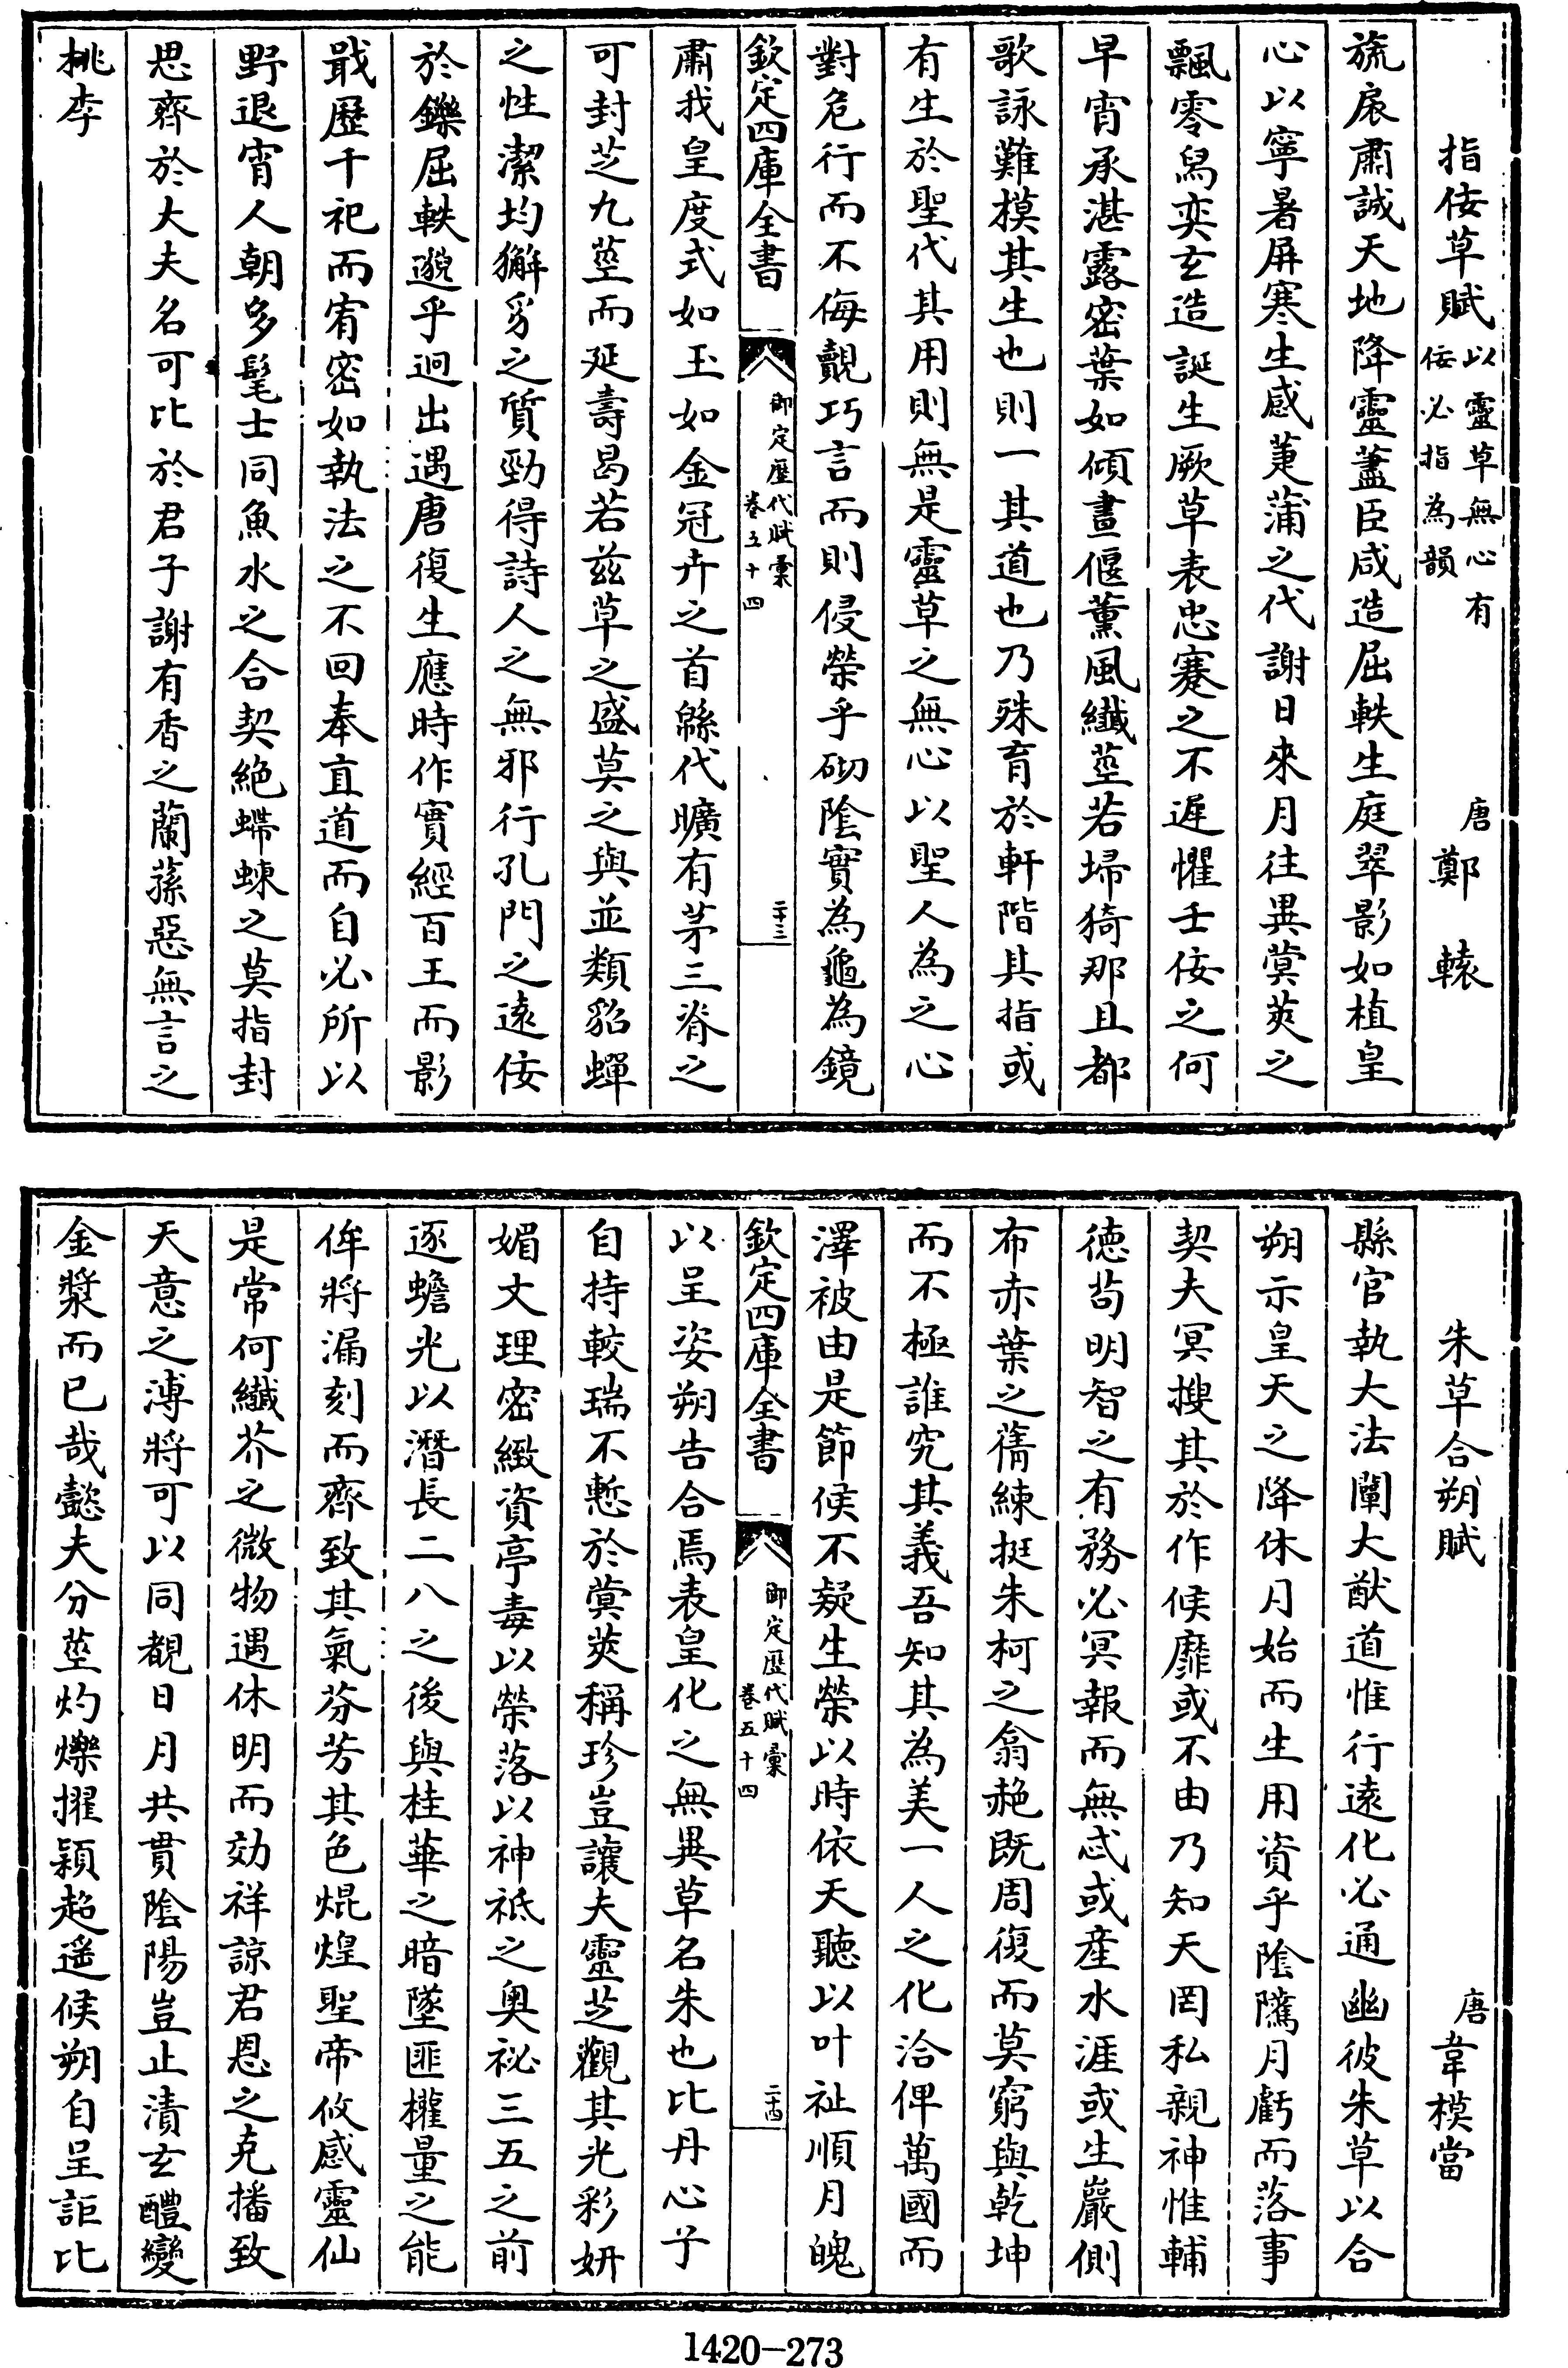 指佞草賦以靈草無心有佞必指為韻 唐鄭轅
旒扆肅誠天地降靈藎臣咸造屈軼生庭翠影如植皇
心以寧暑屏寒生感萐蒲之代謝日來月往異蓂莢之
飄零舄奕玄造誕生厥草表忠蹇之不遲懼壬佞之何
早宵承湛露密葉如傾晝偃薰風纖莖若埽猗那且都
歌詠難摸其生也則一其道也乃殊育於軒階其指或
有生於聖代其用則無是靈草之無心以聖人為之心
對危行而不侮覿巧言而則侵榮乎砌陰實為龜為鏡
欽定四庫全書 御定歷代賦彙卷五十四 二十三
肅我皇度式如玉如金冠卉之首緜代曠有茅三脊之
可封芝九莖而延壽曷若茲草之盛莫之與並類貂蟬
之性潔均獬豸之質勁得詩人之無邪行孔門之遠佞
於鑠屈軼邈乎迥出遇唐復生應時作實經百王而影
戢歷千祀而宥密如執法之不回奉直道而自必所以
野退宵人朝多髦士同魚水之合契絕蝃蝀之莫指封
思齊於大夫名可比於君子謝有香之蘭蓀惡無言之
桃李
朱草合朔賦 唐韋模當
縣官執大法闡大猷道惟行遠化必通幽彼朱草以合
朔示皇天之降休月始而生用資乎陰騭月虧而落事
契夫冥搜其於作候靡或不由乃知天罔私親神惟輔
德茍明智之有務必冥報而無忒或產水涯或生巖側
布赤葉之蒨練挺朱柯之翕赩既周復而莫窮與乾坤
而不極誰究其義吾知其為美一人之化洽俾萬國而
澤被由是節候不疑生榮以時依天聽以叶祉順月魄
欽定四庫全書 御定歷代賦彙卷五十四 二十四
以呈姿朔告合焉表皇化之無異草名朱也比丹心于
自持較瑞不慙於蓂莢稱珍豈讓夫靈芝觀其光彩妍
媚文理密緻資亭毒以榮落以神祇之奧祕三五之前
逐蟾光以潛長二八之後與桂華之暗墜匪權量之能
侔將漏刻而齊致其氣芬芳其色焜煌聖帝攸感靈仙
是常何纖芥之微物遇休明而効祥諒君恩之克播致
天意之溥將可以同覩日月共貫陰陽豈止漬玄醴變
金漿而已哉懿夫分莖灼爍擢穎超遥候朔自呈詎比
1420-273